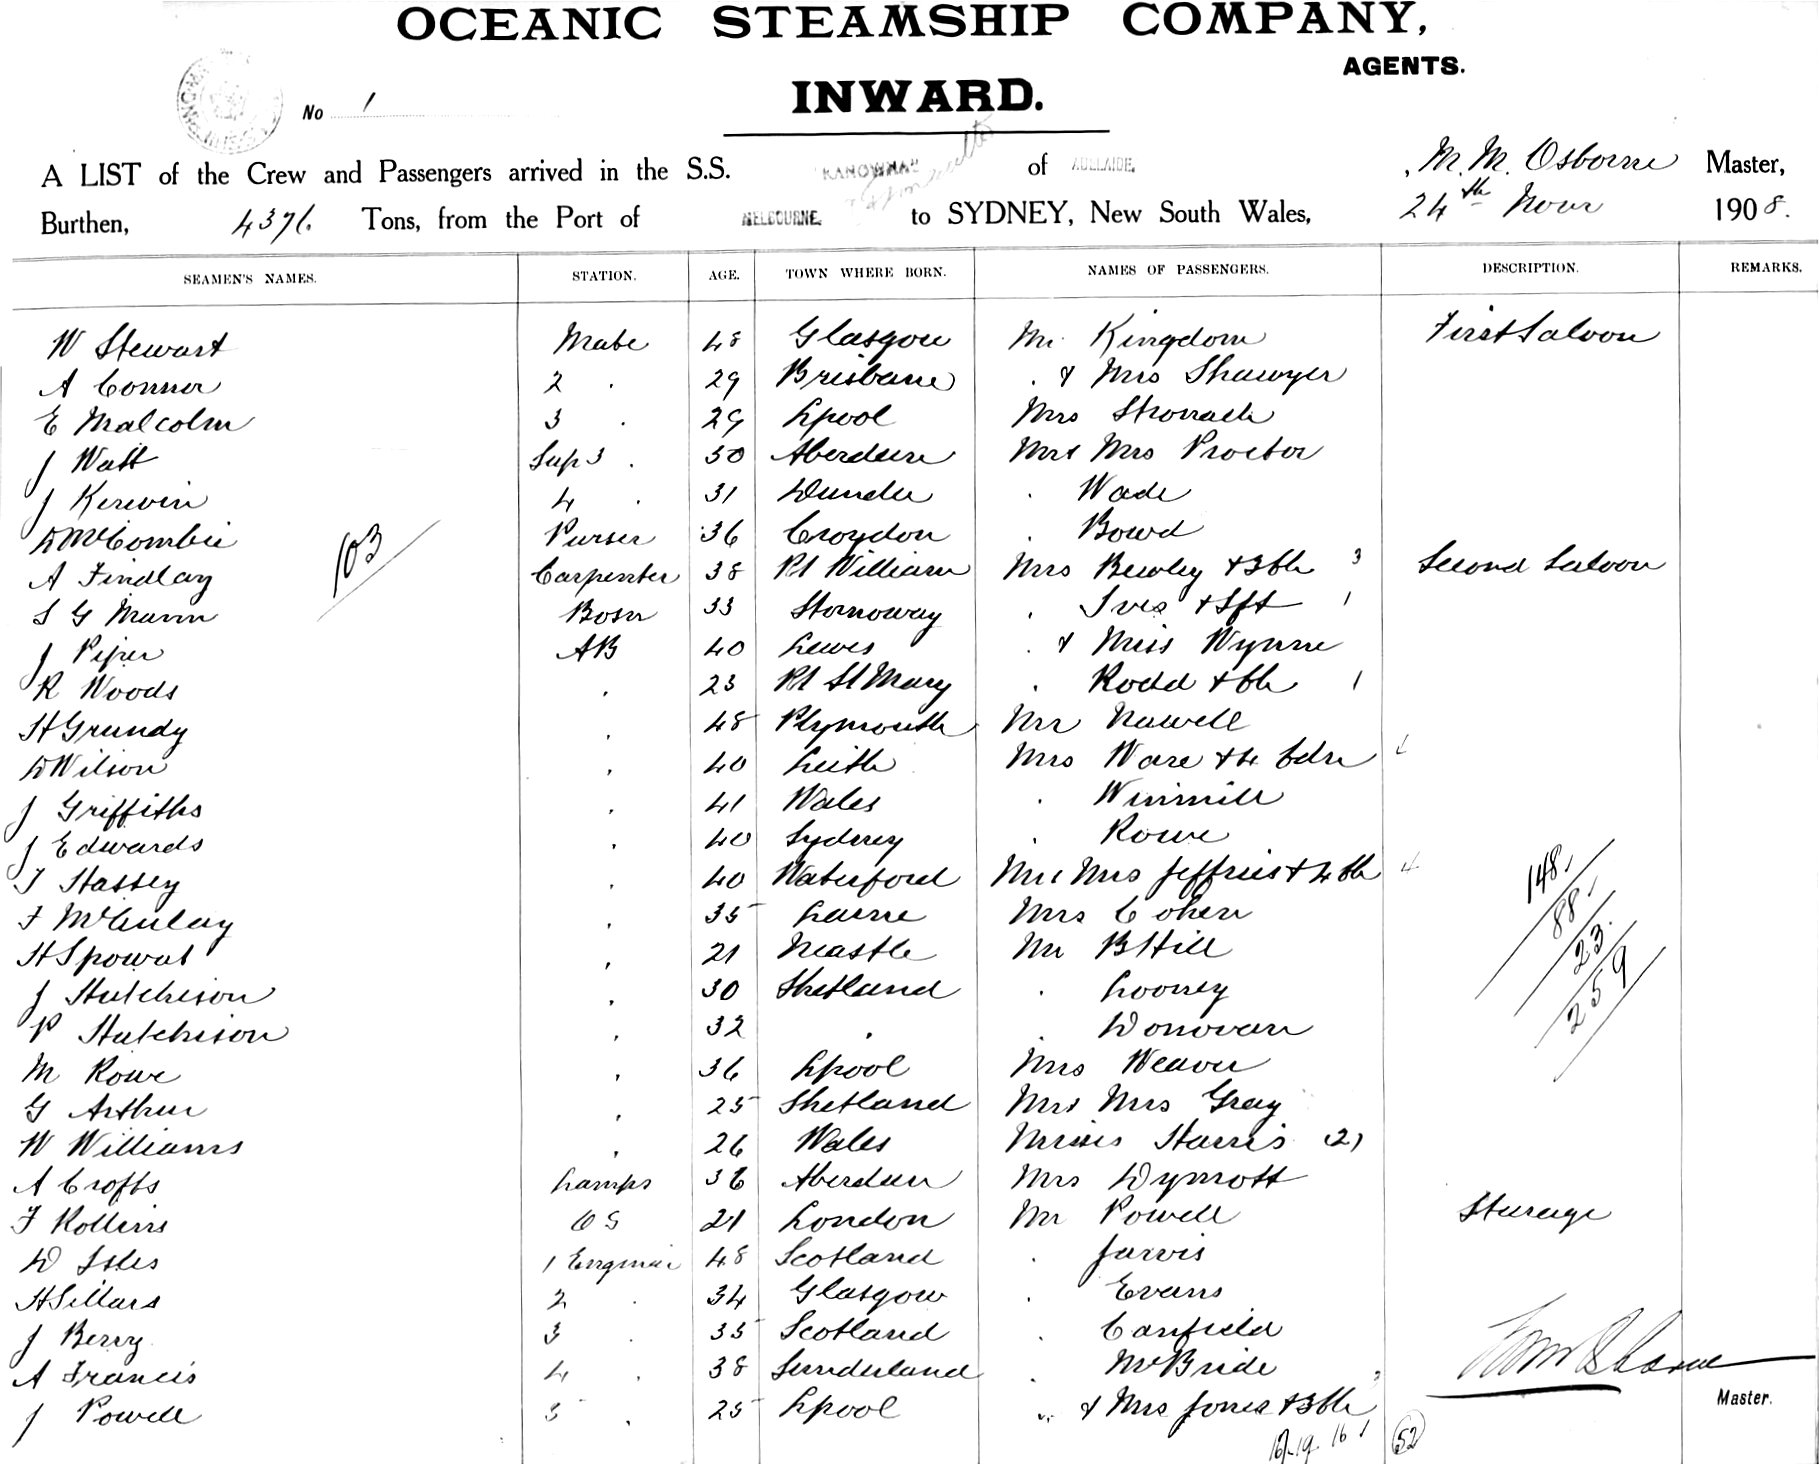 OCEANIC STEAMSHIP COMPANY,
AGENTS.
INWARD.
No 1
A LIST of the Crew and Passengers arrived in the S.S. "KANOWNA" of ADELAIDE. M. M. Osborne Master,
Burthen, 4376 Tons, from the Port of MELBOURNE. to SYDNEY, New South Wales, 24th Novr 1908.
SEAMEN'S NAMES. STATION. AGE. TOWN WHERE BORN. NAMES OF PASSENGERS. DESCRIPTION. REMARKS.
W Stewart Mate 48 Glasgow Mr Kingdom First Saloon
A Connor 2 . 29 Brisbane . & Mrs Shawyer
E Malcolm 3 . 29 Lpool Mrs Stronach
J Watt Sup 3 . 30 Aberdeen Mr & Mrs Proctor
J Kerwin 4 . 31 Dundee . Wade
D McCombie Purser 36 Croydon . Bowd
103
A Findlay Carpenter 38 Pt William Mrs Bewley & 3 Ch 3 Second Saloon
S G Mann Bosn 33 Stornoway . Ives & Inft 1
J Piper AB 40 Lewes . & Miss Wynne
R Woods . 23 Pt St Mary . Rodd & Ch 1
H Grundy . 48 Plymouth Mr Nowell
D Wilson . 40 Leith Mrs Ware & 4 Cdn 4
J Griffiths . 41 Wales . Winmill
J Edwards . 40 Sydney . Rowe
T Hassey . 40 Waterford Mr & Mrs Jeffries & 4 Ch 4
F McAulay . 35 Larne Mrs Cohen
H Spowat . 21 Ncastle Mr B Hill
J Hutchison . 30 Shetland . Looney
P Hutchison . 32 . . Donovan
148.
88.
23.
259
M Rowe . 36 Lpool Mrs Weaver
G Arthur . 25 Shetland Mr & Mrs Gray
W Williams . 26 Wales Misses Harris (2)
A Crofts Lamps 36 Aberdeen Mrs Dymott
F Rollins OS 21 London Mr Powell Steerage
D Isles 1 Engineer 48 Scotland . Jarvis
H Sillars 2 . 34 Glasgow . Evans
J Berry 3 . 35 Scotland . Canfield
A Francis 4 . 38 Sunderland . McBride
J Powell 5 . 25 Lpool . & Mrs Jones & 3 Ch 3
Master.
16 19 16 1 52